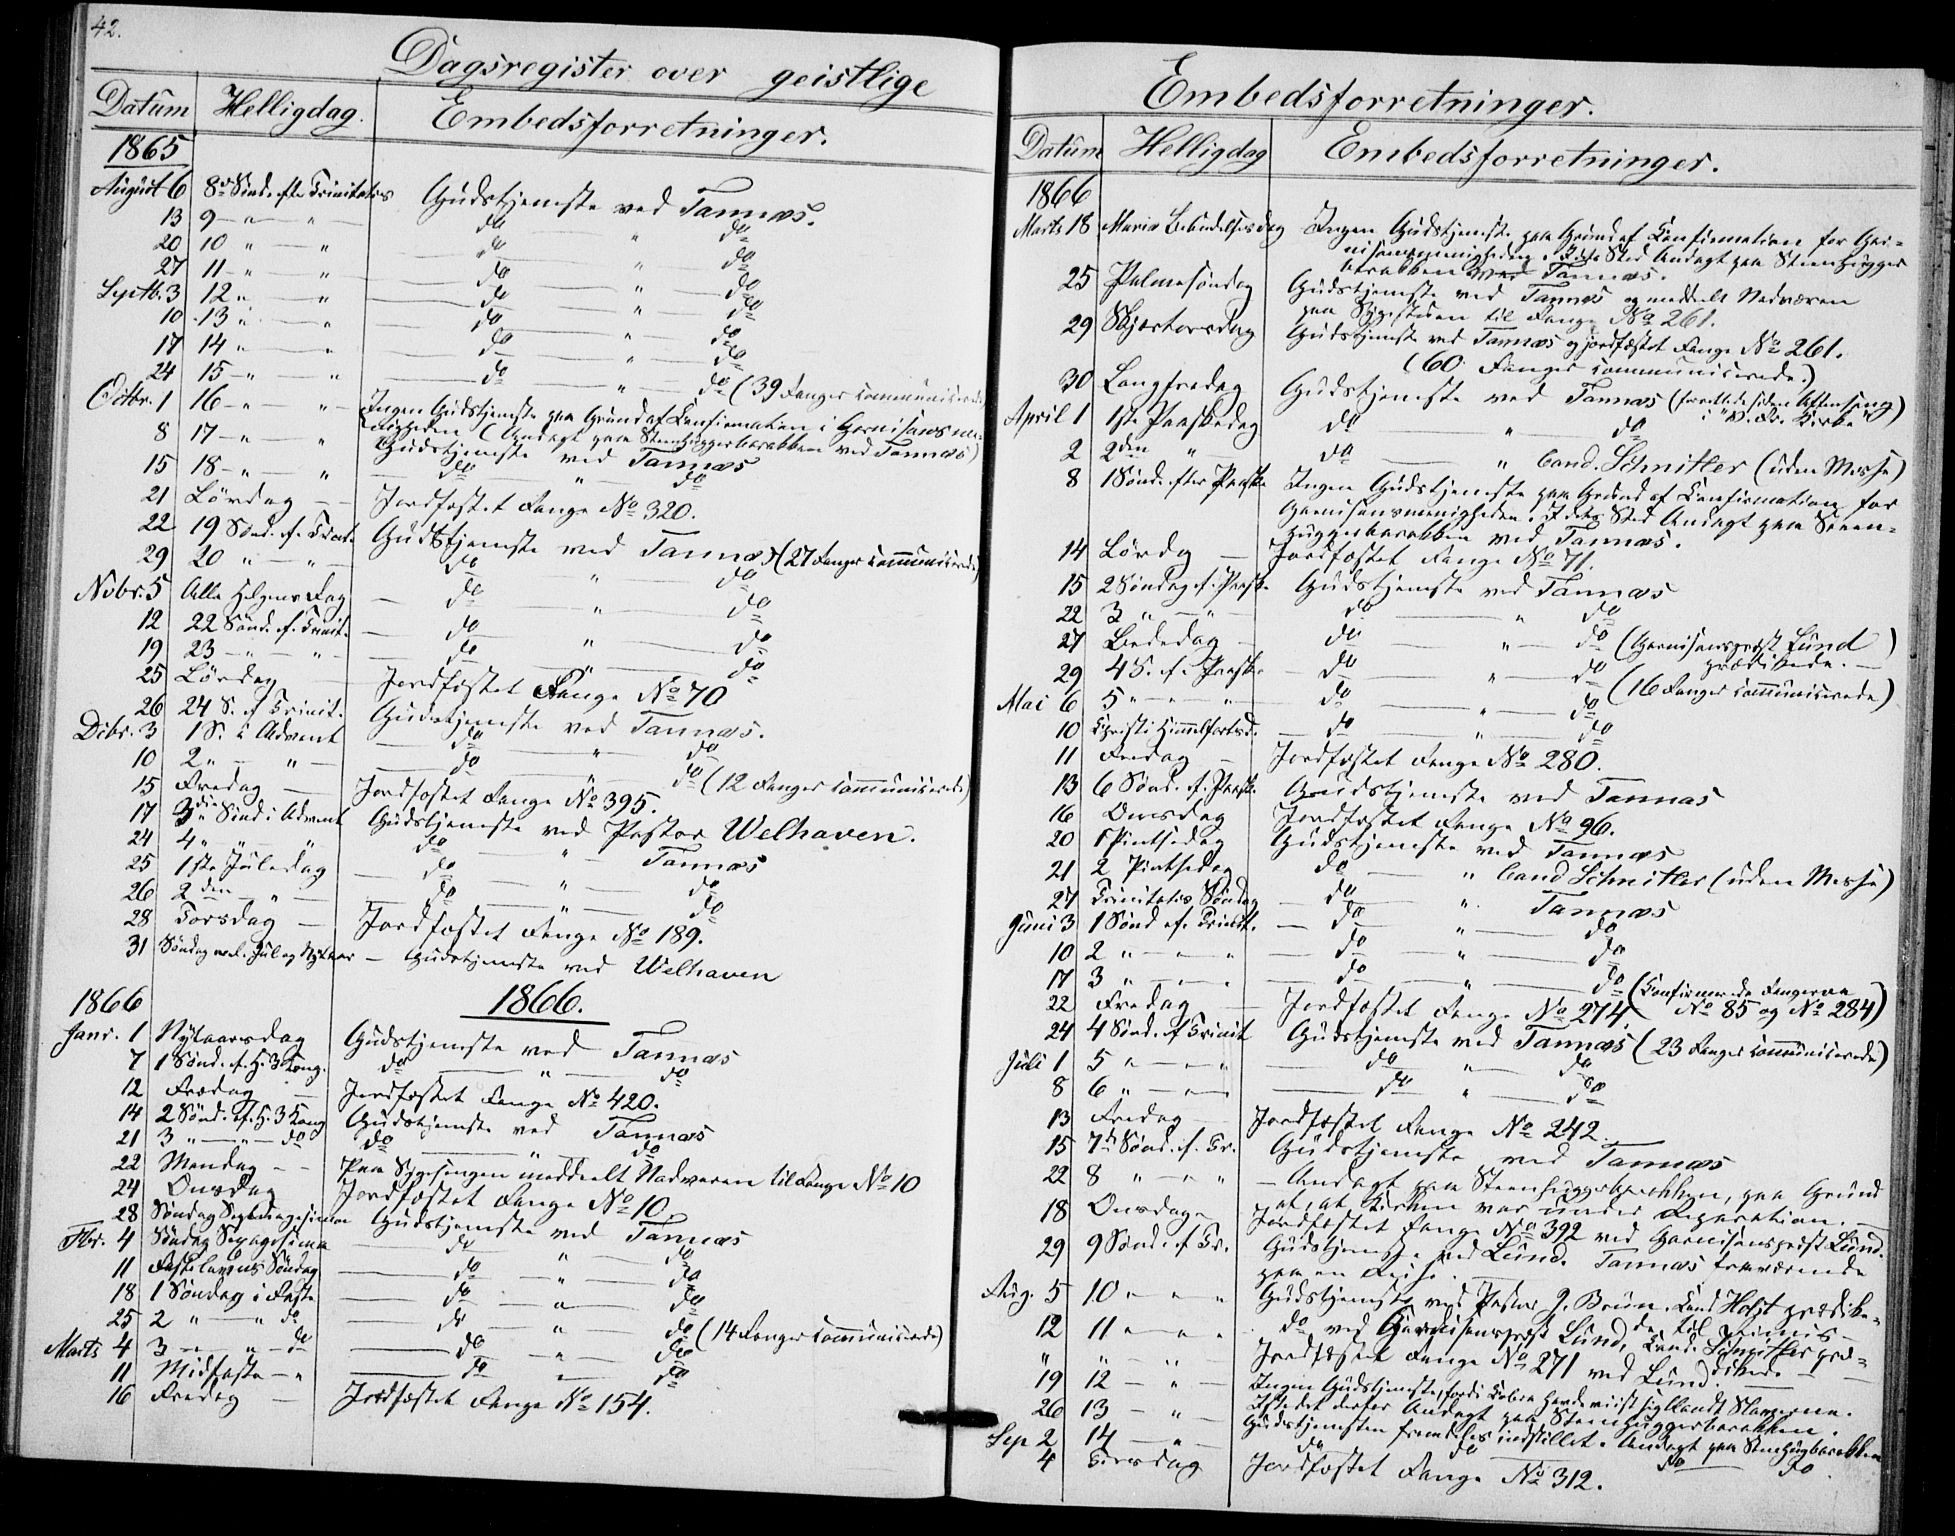 42.
Dagsregister over geistlige
Datum Helligdag. Embedsforretninger.
1865
August 6 8de Sönd. efter Trinitatis Gudstjeneste ved Tannæs.
13 9 — " — " do " do
20 10 " — " do " do
27 11 — " — " do " do
Septb. 3 12 " — " do " do
10 13 " — " do " do
17 14 " — " do " do
24 15 — " — " do " do (39 Fanger communicerede)
Octbr. 1 16 — " — " Ingen Gudstjeneste paa Grund af Confirmation i Garnisonsme-
nigheden (Andagt paa Steenhuggerbarakken ved Tannæs)
8 17 — " — " Gudstjeneste ved Tannæs
15 18 — " — " do " do
21 Lördag — Jordfæstet Fange No 320.
22 19 Sönd. ef. Trinit. Gudstjeneste ved Tannæs (27 Fanger communicerede)
29 20 " — " do " do
Nobr. 5 Alle Helgens Dag do " do
12 22 Sönd. ef. Trinit. do " do
19 23 — " — " do " do
25 Lördag — Jordfæstet Fange No 70
26 24 S. ef Trinit. Gudstjeneste ved Tannæs.
Dcbr. 3 1 S. i Advent do " do
10 2 " — " do " do (12 Fanger communicerede)
15 Fredag — Jordfæstet Fange No 395.
17 3die Sönd i Advent Gudstjeneste ved Pastor Welhaven.
24 4 " — " do " Tannæs
25 1ste Juledag do " do
26 2den — " do " do
28 Torsdag — Jordfæstet Fange No 189.
31 Söndag ml. Jul og Nytaar — Gudstjeneste ved Welhaven
1866 1866.
Janr. 1 Nytaarsdag Gudstjeneste ved Tannæs
7 1 Sönd. ef. H. 3 Kong. do " do
12 Fredag — Jordfæstet Fange No 420.
14 2 Sönd. ef. H. 3 Kong Gudstjeneste ved Tannæs
21 3 " — " — do do " do
22 Mandag — Paa Sygesengen meddeelt Nadveren til Fange No 10
24 Onsdag Jordfæstet Fange No 10
28 Söndag Septuagesima Gudstjeneste ved Tannæs
Fbr. 4 Söndag Sexagesima do " do
11 Fastelavns Söndag do " do
18 1 Söndag i Faste do " do
25 2 " — " do do " do (14 Fanger communicerede)
Marts 4 3 — " — do do " do
11 Midfaste — " do " do
16 Fredag — Jordfæstet Fange No 154.
Embedsforretninger.
Datum Helligdag Embedsforretninger.
1866
Marts 18 Mariæ Bebudelsesdag Ingen Gudstjeneste paa Grund af Confirmation for Gar-
nisonsmenigheden. I dets Sted Andagt paa Steenhugger
barakken ved Tannæs.
25 Palmesöndag Gudstjeneste ved Tannæs og meddeelt Nadveren
paa Sygestuen til Fange No 261.
29 Skjærtorsdag Gudstjeneste ved Tannæs og jordfæstet Fange No 261.
(60 Fanger communicerede.)
30 Langfredag Gudstjeneste ved Tannæs (forrettede siden Aftensang)
April 1 1ste Paaskedag do " do
2 2den " do " Cand. Schnitler (uden Messe)
8 1 Sönd. efter Paaske Ingen Gudstjeneste paa Grund af Confirmation for
Garnisonsmenigheden. I dets Sted Andagt paa Steen-
huggerbarakken ved Tannæs.
14 Lördag — Jordfæstet Fange No 71.
15 2 Söndag ef. Paaske Gudstjeneste ved Tannæs
22 3 " — " do " do
27 Bededag — do " do (Garnisonsprest Lund
prædikede. — )
29 4 S. ef. Paaske — do " do (16 Fanger communicerede)
Mai 6 5 " — " do " do
10 Christi Himmelfartsd. do " do
11 Fredag — Jordfæstet Fange No 280.
13 6 Sönd. ef. Paaske. Gudstjeneste ved Tannæs
16 Onsdag Jordfæstet Fange No 96.
20 1 Pintsedag Gudstjeneste ved Tannæs
21 2 Pintsedag do " Cand Schnitler (uden Messe)
27 Trinitatis Söndag do " Tannæs
Juni 3 1 Sönd ef. Trinit. do " do
10 2 " — " do " do
17 3 " — " do " do (Confirmerede Fangerne
No 85 og No 284)
22 Fredag — Jordfæstet Fange No 274.
24 4 Sönd. ef Trinit Gudstjeneste ved Tannæs (23 Fanger communicerede)
Juli 1 5 " — " do " do
8 6 " — " do " do
13 Fredag — Jordfæstet Fange No 242.
15 7de Sönd. ef. Tr. Gudstjeneste ved Tannæs
22 8 " — " — Andagt paa Steenhuggerbarakken, paa Grund
af, at Kirken var under Reparation. —
18 Onsdag Jordfæstet Fange No 392 ved Garnisonsprest Lund.
29 9 Sönd. ef Tr. Gudstjeneste ved Lund. Tannæs fraværende
paa en Reise.
Aug. 5 10 " — " Gudstjeneste ved Pastor J. Brun. Cand Holst prædike-
de til
12 11 " — " do ved Garnisonsprest Lund, Cand. Schnitler præ-
dikede —
" " " " Jordfæstet Fange No 271 ved Lund.
19 12 — " — Ingen Gudstjeneste, fordi Cholera havde viist sig blandt Slaverne.
Istedet derfor Andagt paa Steenhuggerbarakken.
26 13 — " — Gudstjenesten fremdeles indstillet. Andagt paa Steenhugbarakken
Sep 2 14 — " — do do do do
4 Tirsdag Jordfæstet Fange No 312.